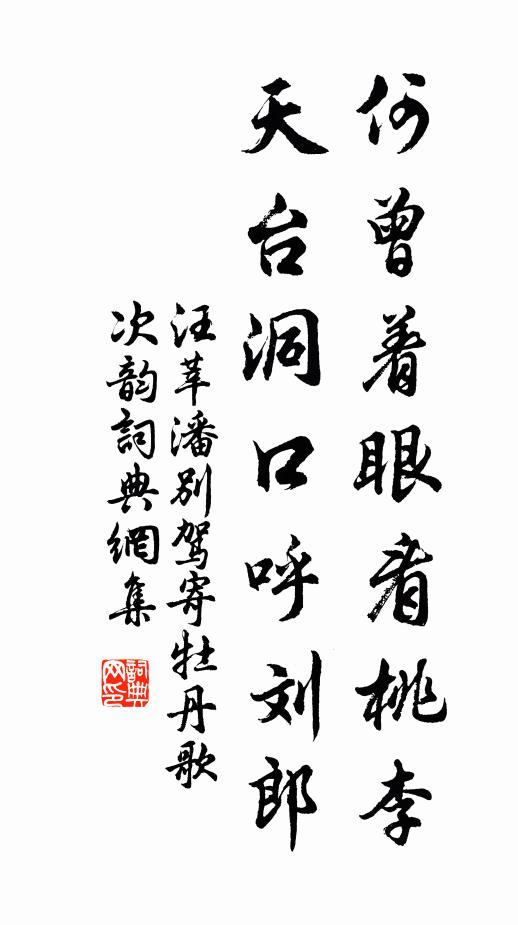 何曾着眼看桃李
天台洞口呼刘郎
汪莘潘别驾寄牡丹歌
次韵詞典網集
詞典
网印